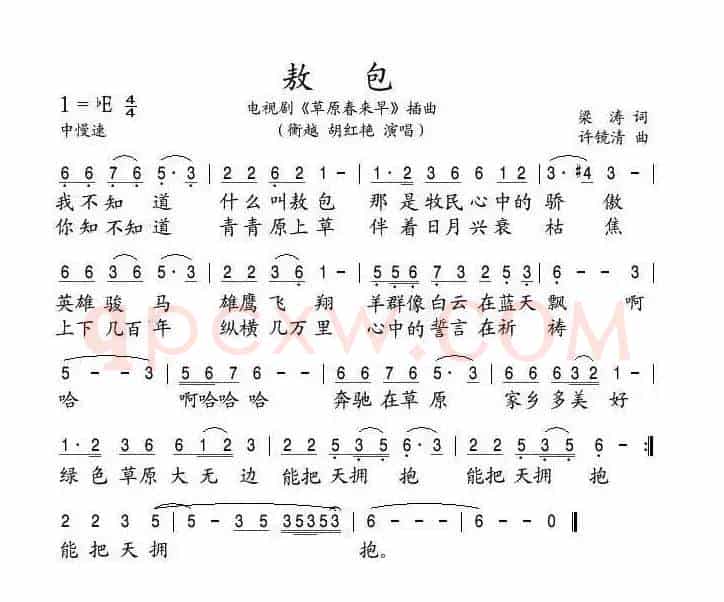 敖 包
1 = ♭E 4/4
电视剧《草原春来早》插曲
梁 涛 词
中慢速
(衡越 胡红艳 演唱)
许镜清 曲
6 6 7 6 5·3 | 2 2 6 2 1 - | 1·2 3 6 6 6 1 2 | 3·#4 3 - |
我不知 道 什么叫敖包 那是牧民心中的骄 傲
你知不知道 青青原上草 伴着日月兴衰 枯 焦
6 6 3 6 5·3 | 2 2 3 6 1 - | 5 5 6 7 3 2 2 5 3 | 6 - - 1 2 |
英雄骏 马 雄鹰飞 翔 羊群像白云在蓝天飘 啊
上下几百年 纵横几万里 心中的誓言在祈 祷
qpcxw.com
5 - - 3 | 5 6 7 6 - | 2 3 6 7 6 5·3 | 6 6 6 3 2 1 - |
哈 啊哈哈哈 奔驰在草原 家乡多美好
1·2 3 6 6 1 2 | 2 2 5 3 5 6·3 | 2 2 5 3 5 6 - :||
绿色草原大无边 能把天拥 抱 能把天拥 抱
2 2 3 5 | 5 - 3 5 3 5 3 5 3 | 6 - - - | 6 - 6 0 ||
能把天拥 抱。